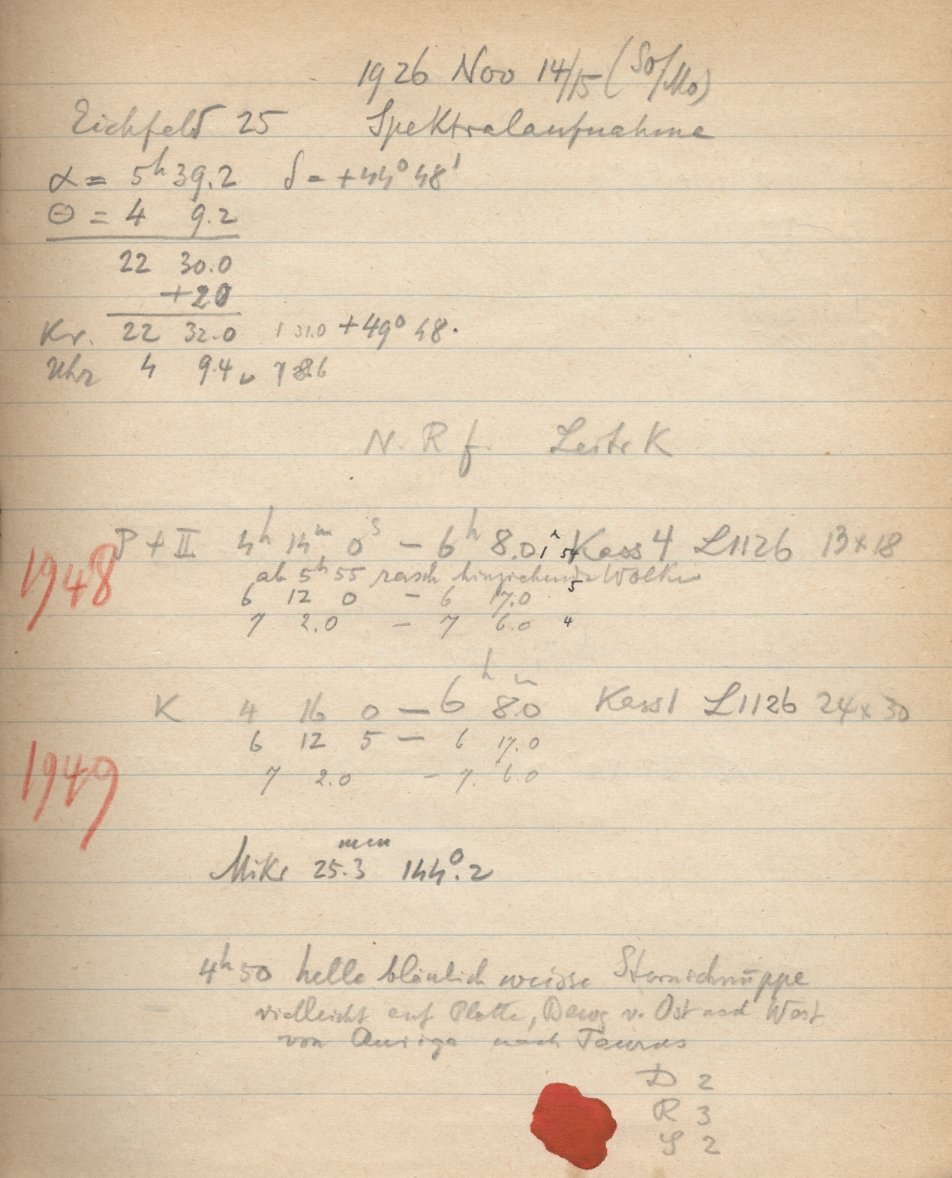 1926 Nov 14/15 (So/Mo)
Eichfeld 25 Spektralaufnahme
α = 5h 39.2 δ = +44° 48'
Θ = 4 9.2
22 30.0
+20
Kr. 22 32.0 1 31.0 +49° 48.
Uhr 4 9.4
N. R f. Leitr K
1948 P + II 4h 14m 0s – 6h 8.0 Kass 4 L1126 13×18
ab 5h 55 rasch hinziehende Wolken
6 12 0 – 6 17.0 5
7 2.0 – 7 6.0 4
K 4 16 0 – 6h 8.0m Kass 1 L1126 24×30
6 12 5 – 6 17.0
1949 7 2.0 – 7. 6.0
Mikr 25.3mm 144°.2
4h 50 helle bläulich weisse Sternschnuppe
vielleicht auf Platte, Bewg v. Ost nach West
von Auriga nach Taurus
D 2
R 3
S 2